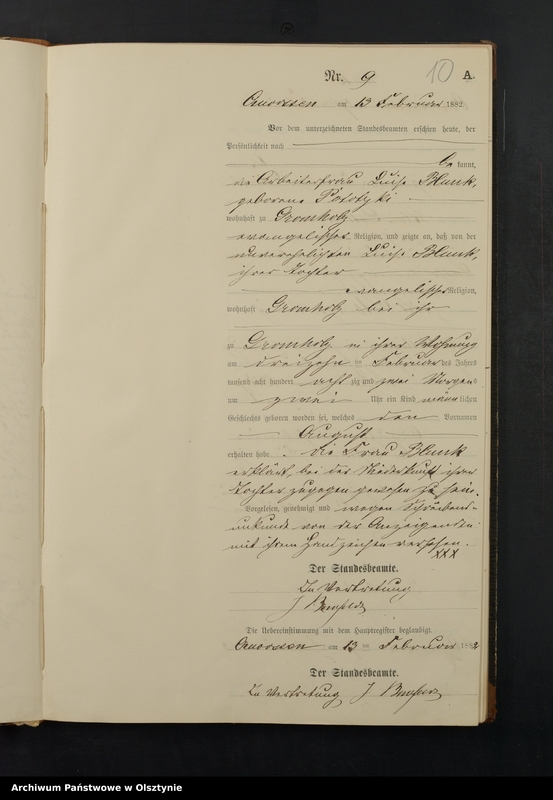 Nr. 9
10
A.
am 13 Februar 1882.
Vor dem unterzeichneten Standesbeamten erschien heute, der
Persönlichkeit nach
be kannt,
die Arbeiterfrau Luise Blank,
geborene
wohnhaft zu Gromholz
evangelischer Religion, und zeigte an, daß von der
unverehelichten Luise Blank,
ihrer Tochter
evangelischer Religion,
wohnhaft Gromholz bei ihr
zu Gromholz in ihrer Wohnung
am dreizehn ten Februar des Jahres
tausend acht hundert acht zig und zwei Morgens
um zwei Uhr ein Kind männ lichen
Geschlechts geboren worden sei, welches den Vornamen
August
erhalten habe. Die Frau Blank
erklärt, bei der Niederkunft ihrer
Tochter zugegen gewesen zu sein.
Vorgelesen, genehmigt und wegen Schreibens-
unkunde von der Anzeigenden
mit ihrem Handzeichen versehen.
XXX
Der Standesbeamte.
In Vertretung
J
Die Uebereinstimmung mit dem Hauptregister beglaubigt.
am 13 ten Februar 1882
Der Standesbeamte.
In Vertretung J
Archiwum Państwowe w Olsztynie